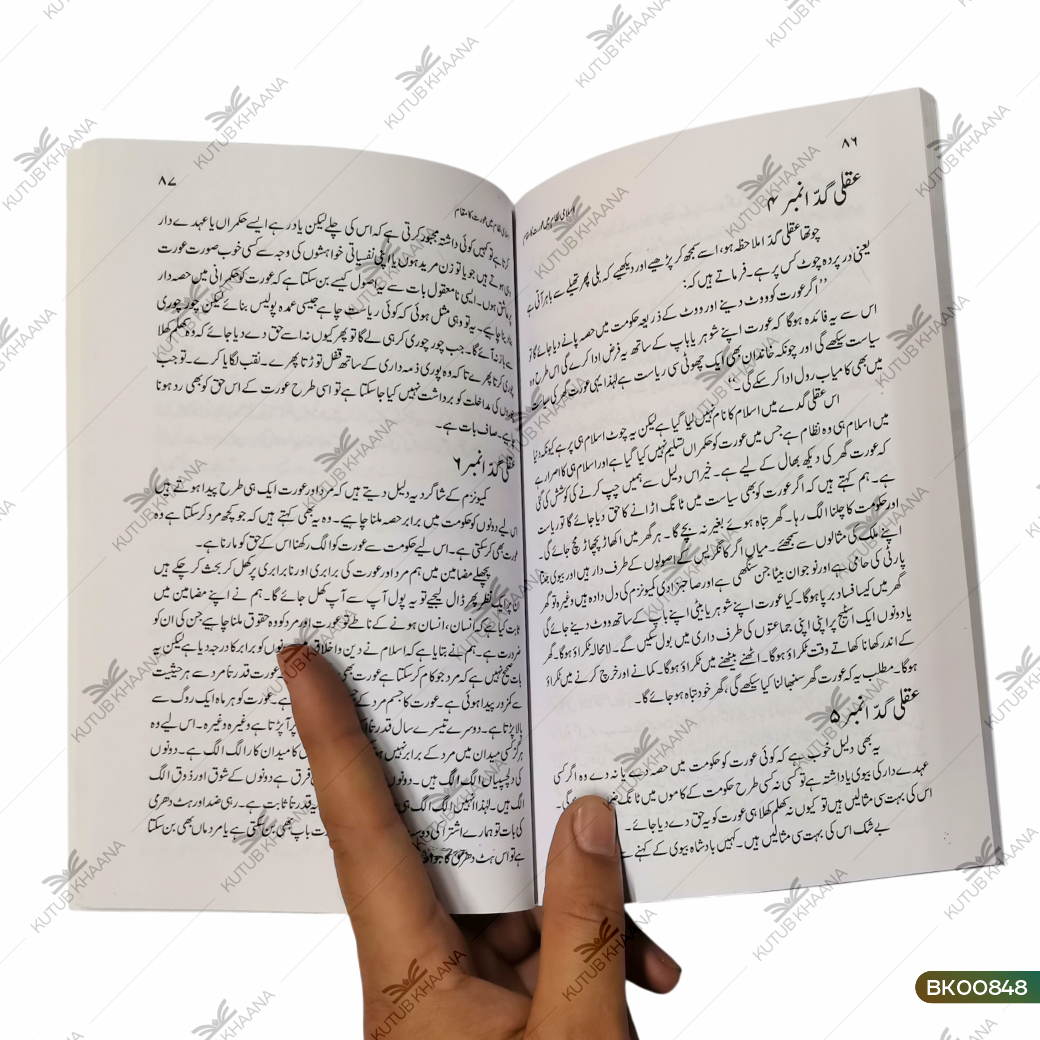 ۸۶
اسلامی نظام میں عورت کا مقام
عقلی گدّا نمبر ۴
چوتھا عقلی گدّا ملاحظہ ہو، اسے سمجھ کر پڑھیے اور دیکھیے کہ بلی پھر تھیلے سے باہر آتی ہے
یعنی در پردہ چوٹ کس پر ہے۔ فرماتے ہیں کہ:
’’اگر عورت کو ووٹ دینے اور ووٹ کے ذریعہ حکومت میں حصہ پانے دیا جائے گا تو
اس سے یہ فائدہ ہوگا کہ عورت اپنے شوہر یا باپ کے ساتھ یہ فرض ادا کرے گی اس طرح وہ
سیاست سیکھے گی اور چونکہ خاندان بھی ایک چھوٹی سی ریاست ہے لہٰذا یہی عورت گھر کی سیاست
میں بھی کامیاب رول ادا کر سکے گی۔‘‘
اس عقلی گدے میں اسلام کا نام نہیں لیا گیا ہے لیکن یہ چوٹ اسلام ہی پر ہے کیونکہ دنیا
میں اسلام ہی وہ نظام ہے جس میں عورت کو حکمراں تسلیم نہیں کیا گیا ہے اور اسلام ہی کا اصرار ہے
کہ عورت گھر کی دیکھ بھال کے لیے ہے۔ خیر اس دلیل سے ہمیں چپ کرنے کی کوشش کی گئی
ہے۔ ہم کہتے ہیں کہ اگر عورت کو بھی سیاست میں ٹانگ اڑانے کا حق دیا جائے گا تو ریاست
اور حکومت کا چلنا الگ رہا۔ گھر تباہ ہوئے بغیر نہ بچے گا۔ ہر گھر میں اکھاڑ پچھاڑ مچ جائے گی۔
اپنے ملک کی مثالوں سے سمجھئے۔ میاں اگر کانگریس کے اصولوں کے طرف دار ہیں اور بیوی جنتا
پارٹی کی حامی ہے اور نوجوان بیٹا جن سنگھی ہے اور صاحبزادی کمیونزم کی دل دادہ ہیں وغیرہ تو گھر
گھر میں کیسا فساد برپا ہوگا۔ کیا عورت اپنے شوہر یا بیٹی اپنے باپ کے ساتھ ووٹ دینے جائے گی
یا دونوں ایک اسٹیج پر اپنی اپنی جماعتوں کی طرف داری میں بول سکیں گے۔ لامحالہ ٹکراؤ ہوگا۔ گھر
کے اندر کھانا کھاتے وقت ٹکراؤ ہوگا۔ اٹھنے بیٹھنے میں ٹکراؤ ہوگا۔ کمانے اور خرچ کرنے میں ٹکراؤ
ہوگا۔ مطلب یہ کہ عورت گھر سنبھالنا کیا سیکھے گی، گھر خود تباہ ہو جائے گا۔
عقلی گدّا نمبر ۵
یہ بھی دلیل خوب ہے کہ کوئی عورت کو حکومت میں حصہ دے یا نہ دے وہ اگر کسی
عہدے دار کی بیوی یا داشتہ ہے تو کسی نہ کسی طرح حکومت کے کاموں میں ٹانگ گی۔
اس کی بہت سی مثالیں ہیں تو کیوں نہ کھلم کھلا ہی عورت کو یہ حق دے دیا جائے۔
بے شک اس کی بہت سی مثالیں ہیں۔ کہیں بادشاہ بیوی کے کہنے
۸۷
اسلامی نظام میں عورت کا مقام
کرتا ہے تو کہیں کوئی داشتہ مجبور کرتی ہے کہ اس کی چلے لیکن یاد رہے ایسے حکمراں یا عہدے دار
وہی ہوتے ہیں جو یا تو زن مرید ہوں یا اپنی نفسیاتی خواہشوں کی وجہ سے کسی خوب صورت عورت
پر عاشق ہوں۔ ایسی نامعقول بات سے یہ اصول کیسے بن سکتا ہے کہ عورت کو حکمرانی میں حصہ دار
بنایا جائے۔ یہ تو وہی مثل ہوئی کہ کوئی ریاست چاہے جیسی عمدہ پولیس بنائے لیکن چور چوری
سے باز نہ آئے گا۔ جب چور چوری کر ہی لے گا تو پھر کیوں نہ اسے حق دے دیا جائے کہ وہ کھلم کھلا
چوری کرتا پھرے تاکہ وہ پوری ذمہ داری کے ساتھ قفل توڑتا پھرے۔ نقب لگایا کرے۔ تو جب
چوروں کی مداخلت کو برداشت نہیں کیا جا سکتا ہے تو اسی طرح عورت کے اس حق کو بھی رد ہونا
چاہیے۔ صاف بات ہے۔
عقلی گدّا نمبر ۶
کمیونزم کے شاگرد یہ دلیل دیتے ہیں کہ مرد اور عورت ایک ہی طرح پیدا ہوتے ہیں
اس لیے دونوں کو حکومت میں برابر حصہ ملنا چاہیے۔ وہ یہ بھی کہتے ہیں کہ جو کچھ مرد کر سکتا ہے وہ
عورت بھی کر سکتی ہے۔ اس لیے حکومت سے عورت کو الگ رکھنا اس کے حق کو مارنا ہے۔
پچھلے مضامین میں ہم مرد اور عورت کی برابری اور نابرابری پر کھل کر بحث کر چکے ہیں
ان پر ایک نظر پھر ڈال لیجیے تو یہ پول آپ سے آپ کھل جائے گا۔ ہم نے اپنے مضامین میں
ثابت کیا ہے کہ انسان، انسان ہونے کے ناطے تو عورت اور مرد کو وہ حقوق ملنا چاہیے جن کی ان کو
ضرورت ہے۔ ہم نے بتایا ہے کہ اسلام نے دین و اخلاق دونوں کو برابر کا درجہ دیا ہے لیکن یہ
بات صحیح نہیں ہے کہ مرد جو کام کر سکتا ہے عورت بھی عورت قدرتاً مرد سے ہر حیثیت
سے کمزور پیدا ہوئی ہے۔ عورت کا جسم مرد کے ہے۔ عورت کو ہر ماہ ایک روگ سے
پالا پڑتا ہے۔ دوسرے تیسرے سال قدرتاً پر آ پڑتا ہے وغیرہ وغیرہ۔ اس لیے وہ
ہرگز کسی میدان میں مرد کے برابر نہیں ہو کا میدان کار الگ الگ ہے۔ دونوں
کی دلچسپیاں الگ الگ ہیں۔ دونوں فرق ہے دونوں کے شوق اور ذوق الگ
الگ ہیں۔ لہٰذا انہیں الگ الگ ہی یہ قدرتاً ثابت ہے۔ رہی ضد اور ہٹ دھرمی
کی بات تو ہمارے اشتراکی دوست باپ بھی بن سکتی ہے یا مرد ماں بھی بن سکتا
ہے تو اس ہٹ دھرمی کا جواب
BK00848
KUTUB KHAANA